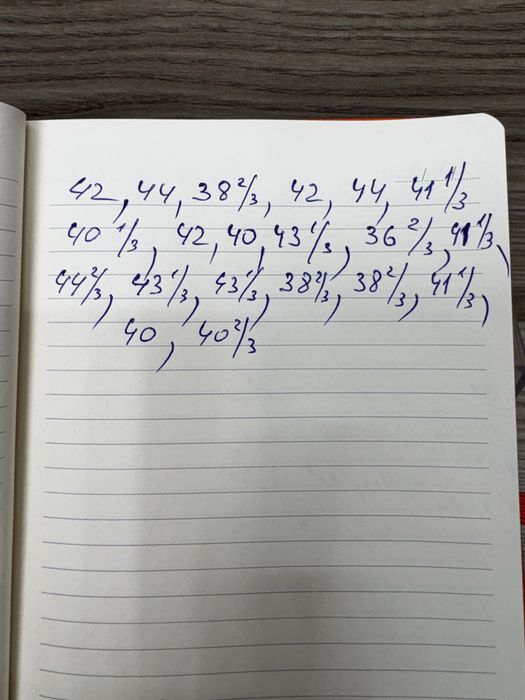 42, 44, 38 2/3, 42, 44, 41 1/3
40 1/3, 42, 40, 43 1/3, 36 2/3, 41 1/3,
44 2/3, 43 1/3, 43 1/3, 38 2/3, 38 2/3, 41 1/3,
40, 40 2/3